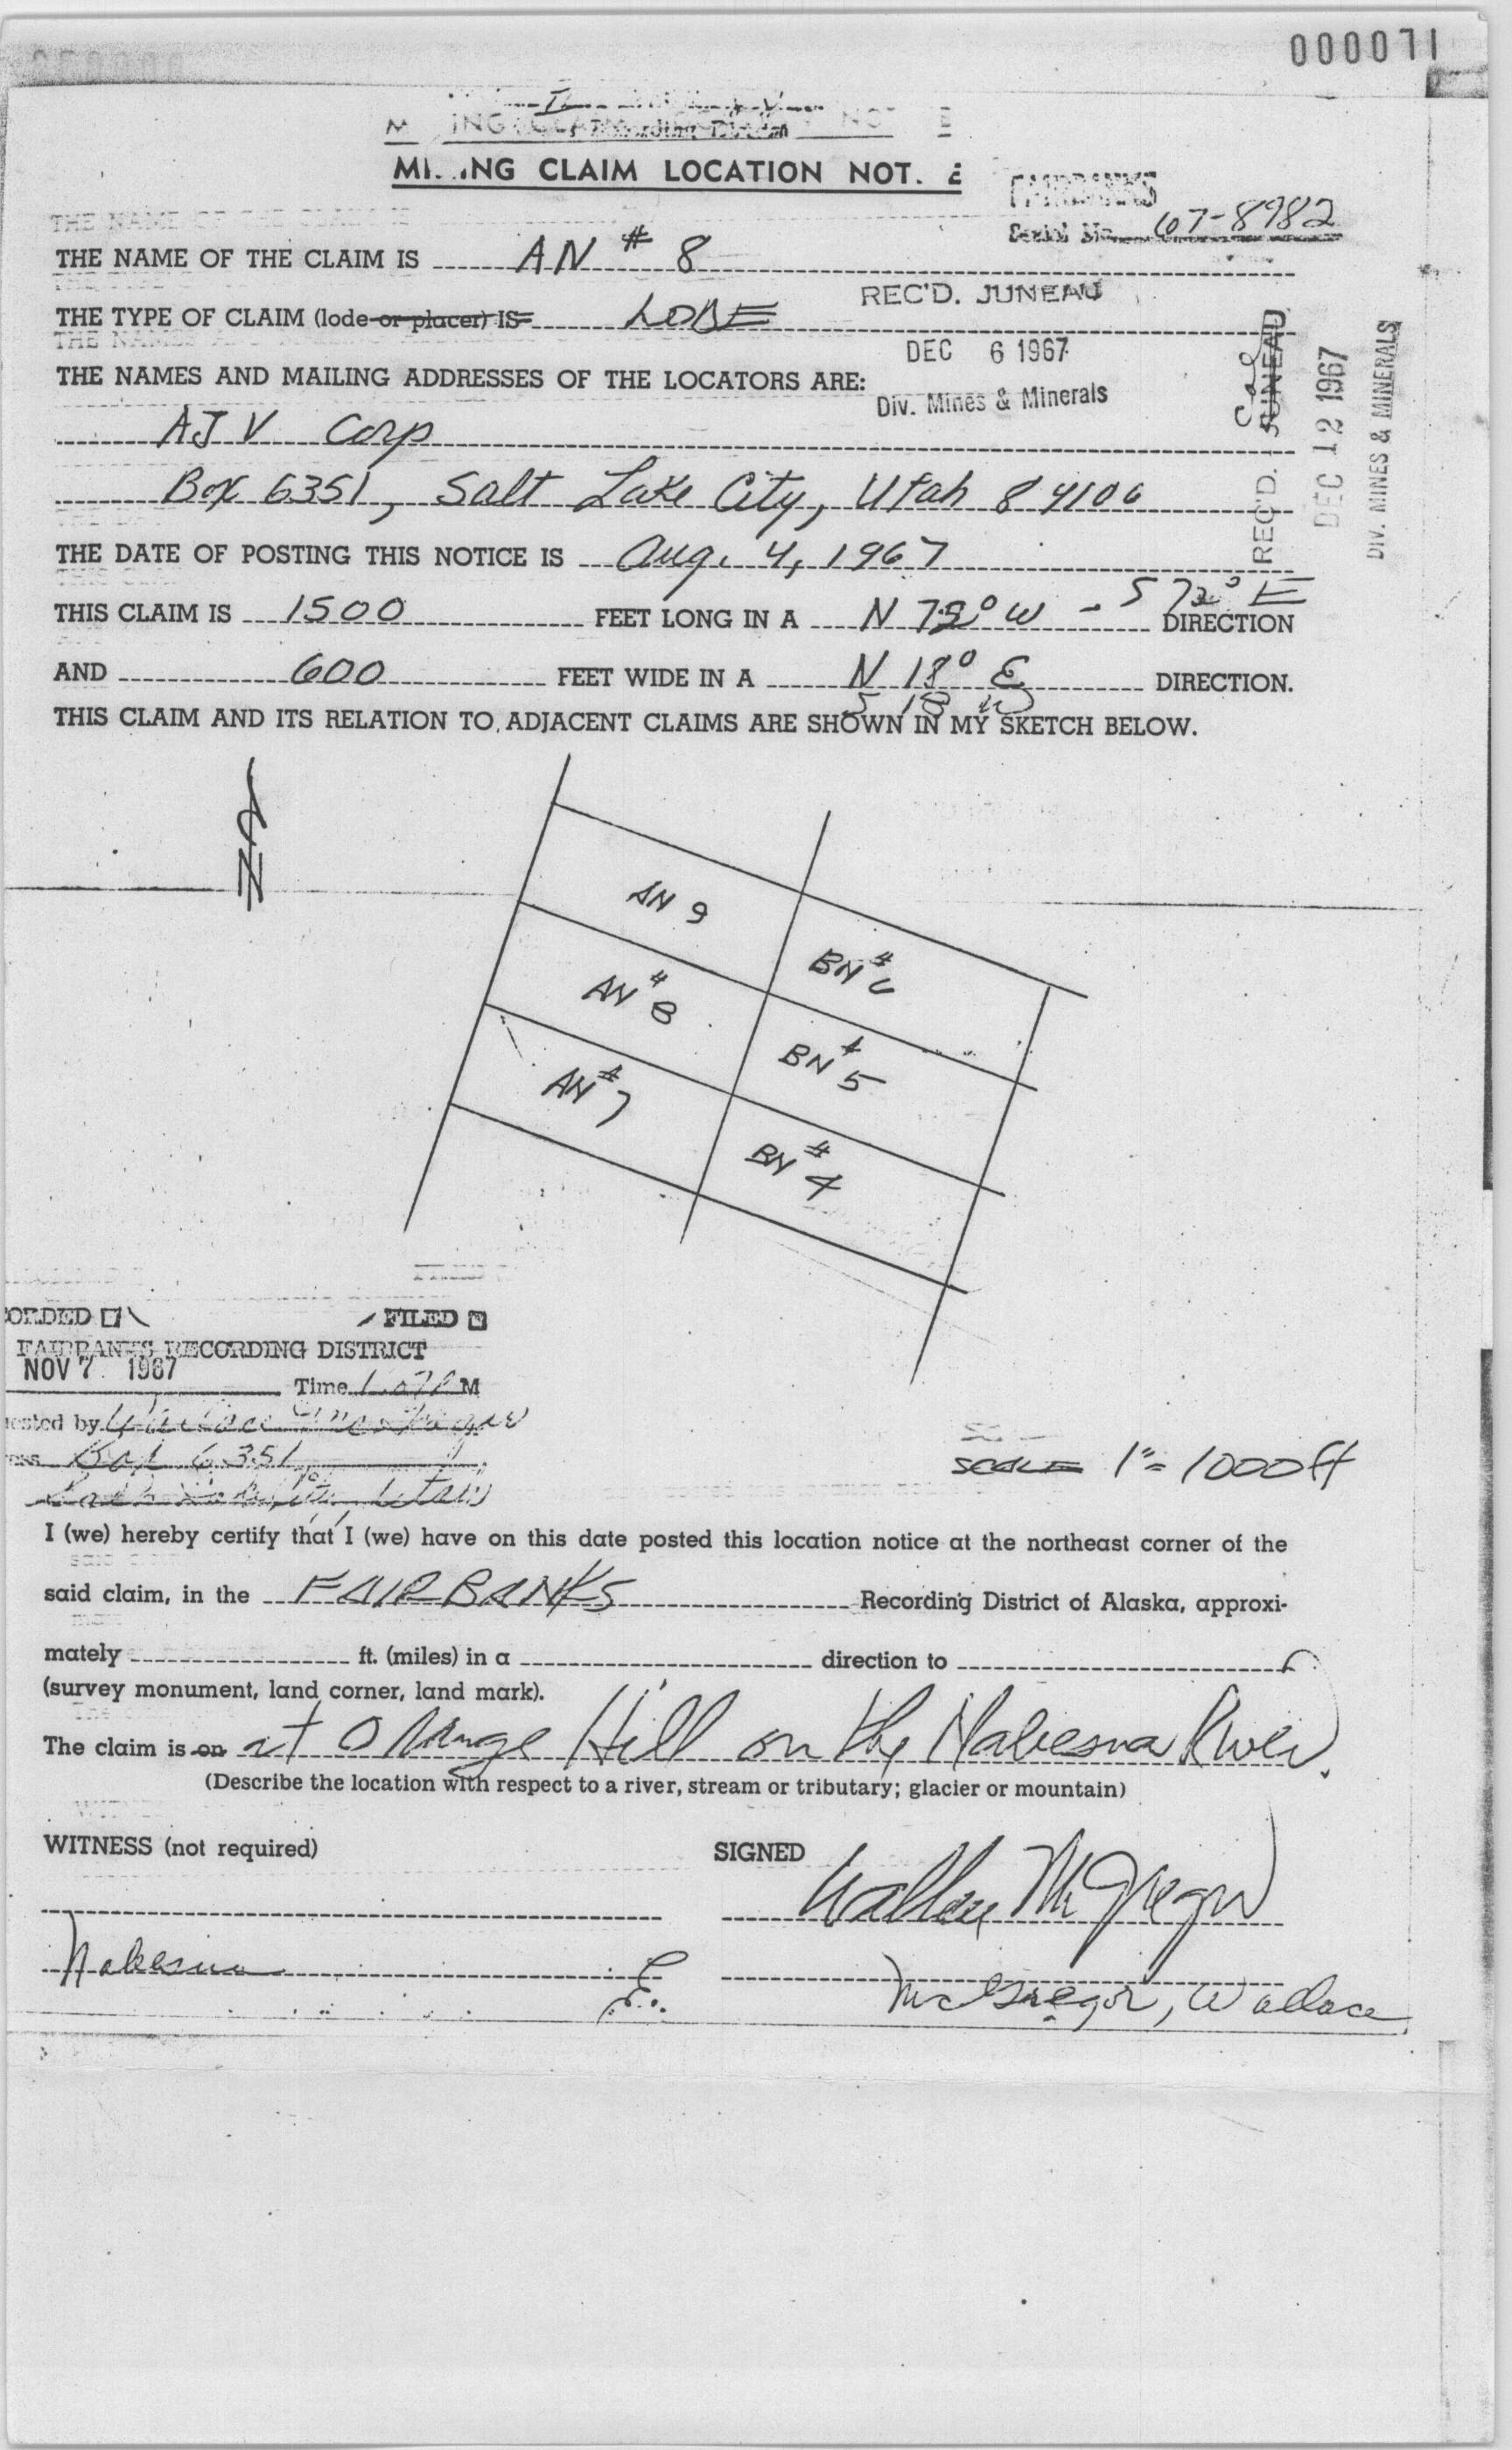 000071
MI. .NG CLAIM LOCATION NOT. E
FAIRBANKS
Serial No. 67-8982
THE NAME OF THE CLAIM IS AN # 8
REC'D. JUNEAU
THE TYPE OF CLAIM (lode or placer) IS LODE
DEC 6 1967
THE NAMES AND MAILING ADDRESSES OF THE LOCATORS ARE:
Div. Mines & Minerals
REC'D. JUNEAU
DEC 12 1967
DIV. MINES & MINERALS
AJV Corp
Box 6351, Salt Lake City, Utah 84106
THE DATE OF POSTING THIS NOTICE IS Aug. 4, 1967
THIS CLAIM IS 1500 FEET LONG IN A N 72° W - S 72° E DIRECTION
AND 600 FEET WIDE IN A N 18° E DIRECTION.
S 18 W
THIS CLAIM AND ITS RELATION TO ADJACENT CLAIMS ARE SHOWN IN MY SKETCH BELOW.
N
AN 9
BN # 6
AN # 8
BN # 5
AN # 7
BN # 4
ORDED FILED
FAIRBANKS RECORDING DISTRICT
NOV 7 1967
Time 1:07 P M
ested by Wallace McGregor
ess Box 6351
Salt Lake City, Utah
SCALE 1" = 1000 ft
I (we) hereby certify that I (we) have on this date posted this location notice at the northeast corner of the
said claim, in the FAIRBANKS Recording District of Alaska, approxi-
mately ft. (miles) in a direction to
(survey monument, land corner, land mark).
The claim is on at Orange Hill on the Nabesna River.
(Describe the location with respect to a river, stream or tributary; glacier or mountain)
WITNESS (not required) SIGNED
Wallace McGregor
Nabesna E.
McGregor, Wallace